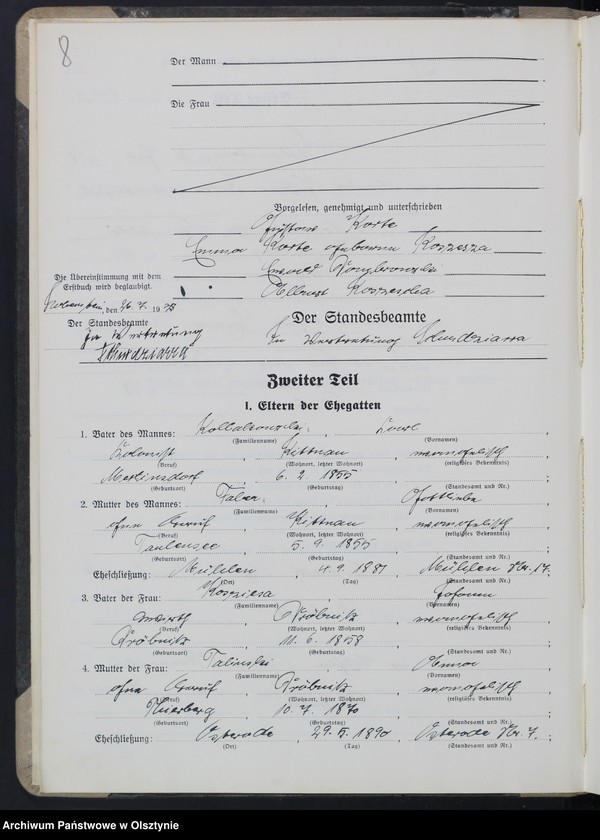 8
Der Mann
Die Frau
Vorgelesen, genehmigt und unterschrieben
Gustav Korte
Emma Korte geborene Kossesza
Die Übereinstimmung mit dem
Erstbuch wird beglaubigt.
, den 26. 7. 19
Der Standesbeamte
In Vertretung
Der Standesbeamte
In Vertretung
Zweiter Teil
I. Eltern der Ehegatten
1. Vater des Mannes: , ,
(Familienname) (Vornamen)
Kolonist , Kittnau , evangelisch ,
(Beruf) (Wohnort, letzter Wohnort) (religiöses Bekenntnis)
Merlinsdorf , 6. 2. 1855 , ;
(Geburtsort) (Geburtstag) (Standesamt und Nr.)
2. Mutter des Mannes: , Gottliebe ,
(Familienname) (Vornamen)
ohne Beruf , Kittnau , evangelisch ,
(Beruf) (Wohnort, letzter Wohnort) (religiöses Bekenntnis)
Taulensee , 5. 9. 1855 , ;
(Geburtsort) (Geburtstag) (Standesamt und Nr.)
Eheschließung: Mühlen , 4. 9. 1881 , Mühlen Nr. 17.
(Ort) (Tag) (Standesamt und Nr.)
3. Vater der Frau: , Johann ,
(Familienname) (Vornamen)
, Pröbnitz , evangelisch ,
(Beruf) (Wohnort, letzter Wohnort) (religiöses Bekenntnis)
Pröbnitz , 11. 6. 1858 , ;
(Geburtsort) (Geburtstag) (Standesamt und Nr.)
4. Mutter der Frau: Talinski , ,
(Familienname) (Vornamen)
ohne Beruf , Pröbnitz , evangelisch ,
(Beruf) (Wohnort, letzter Wohnort) (religiöses Bekenntnis)
Thierberg , 10. 7. 1870 , ;
(Geburtsort) (Geburtstag) (Standesamt und Nr.)
Eheschließung: Osterode , 29. 5. 1890 , Osterode Nr. 7. ;
(Ort) (Tag) (Standesamt und Nr.)
Archiwum Państwowe w Olsztynie